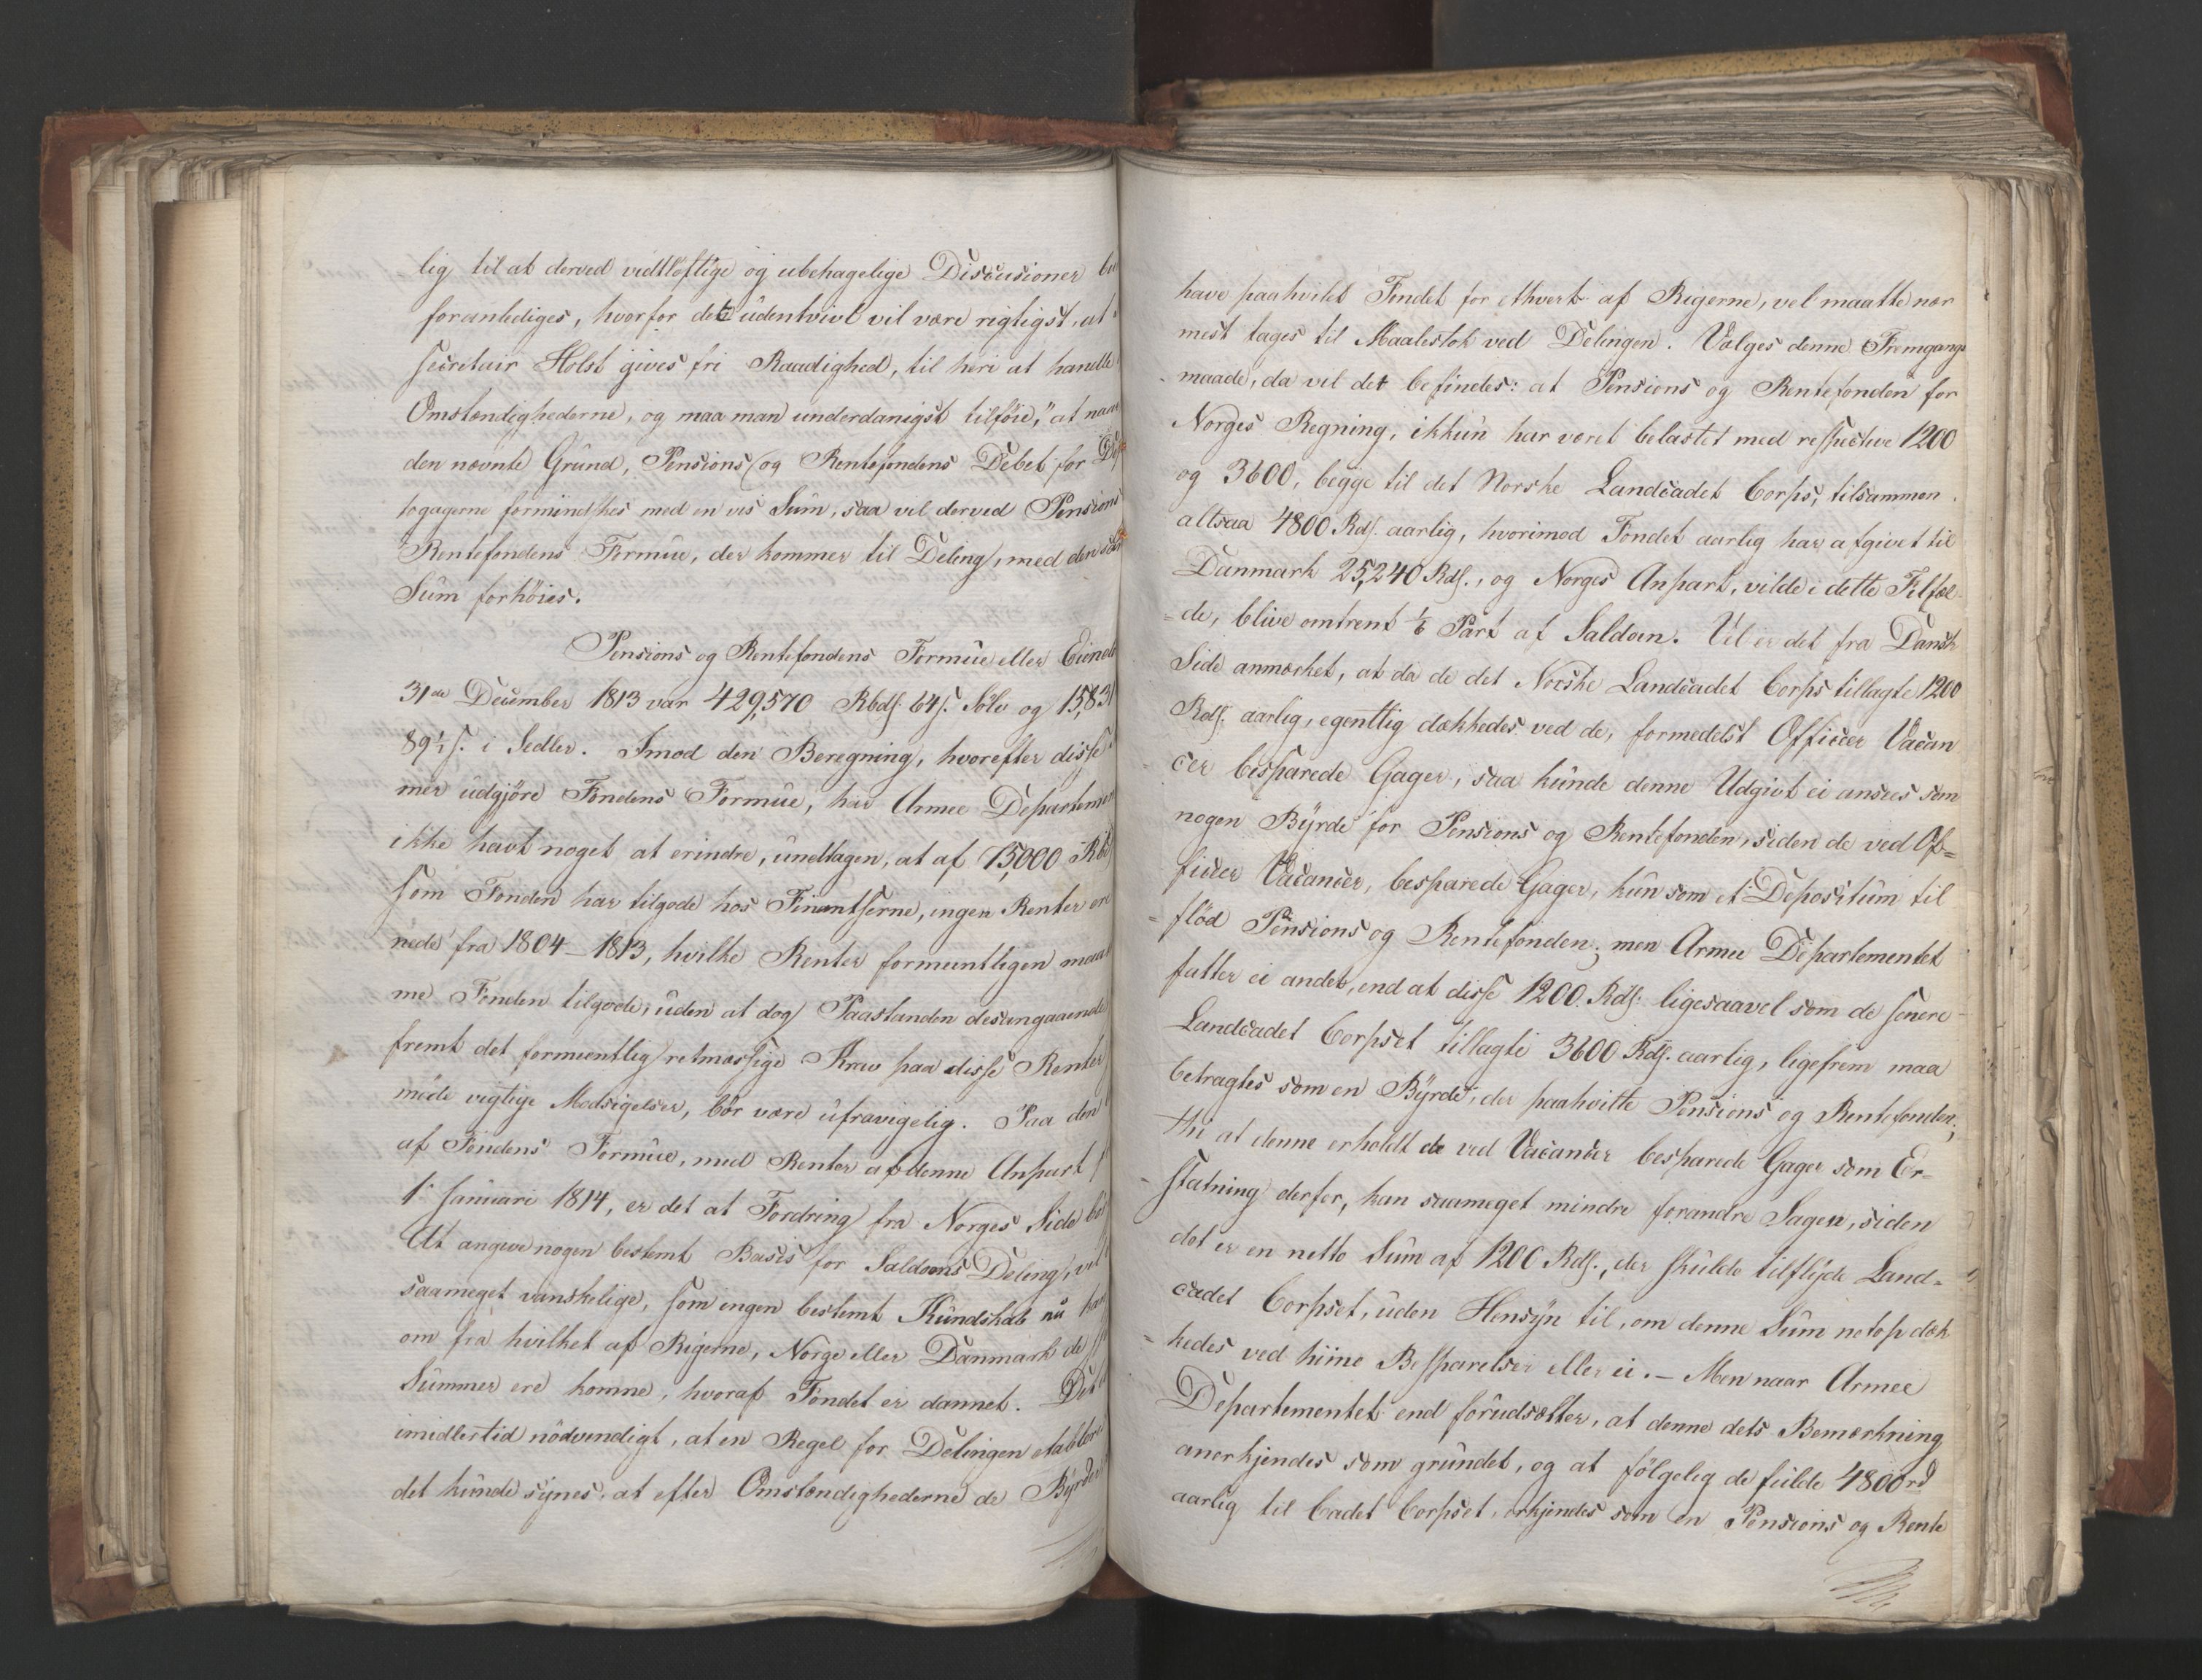 lig til at derved vidtløftige og ubehagelige Discusioner
foranlediges, hvorfor det udentvivl vil være rigtigst, at
Secretair Holst gives fri Raadighed, til heri at handle
Omstændighederne, og maa man underdanigst tilføie, at naar
den nævnte Grund, Pensions og Rentefondens Debet for
togagerne formindskes med en vis Sum, saa vil derved Pensions
Rentefondens Formue, der kommer til Deling, med den
Sum forhöies.
Pensions og Rentefondens Formue eller Eiendele
31de December 1813 var 429,570 Rbdl. 64 s. Sölv og 15,831
89½ s. i Sedler. Imod den Beregning, hvorefter disse
mer udgjöre Fondens Formue, har Armee Departemen
ikke havt noget at erindre, undtagen, at af 15,000 Rbd
som Fonden har tilgode hos Finantserne, ingen Renter er
nede fra 1804-1813, hvilke Renter formeentligen maae
me Fonden tilgode, uden at dog Paastanden desangaaende
fremt det formeentlig retmæssige Krav paa disse Renter
møde vigtige Modsigelser, bör være ufravigelig. Paa den
af Fondens Formue, med Renter af denne Anpart
1ste Januari 1814, er det at Fordring fra Norges Side
At angive nogen bestemt Basis for Saldoens Deling, vil
saameget vanskelige, som ingen bestemt Kundskab nu
om fra hvilket af Rigerne, Norge eller Danmark de
Summer ere komne, hvoraf Fondet er dannet. Det
imidlertid nödvendigt, at en Regel for Delingen etablere
det kunde synes, at efter Omstændighederne de Byrder
have paahvilet Fondet for ethvert af Rigerne, vel maatte nær
mest tages til Maalestok ved Delingen. Vælges denne Fremgangs
maade, da vil det befindes: at Pensions og Rentefonden for
Norges Regning, ikkun har været belastet med respective 1200
og 3600, begge til det Norske Landcadet Corps, tilsammen
altsaa 4800 Rdl. aarlig, hvorimod Fondet aarlig har afgivet til
Danmark 25,240 Rdl., og Norges Anpart, vilde i dette Tilfæl
=de, blive omtrent 1/6 Part af Saldoen. Vel er det fra Dansk
Side anmærket, at da de det Norske Landcadet Corps tillagte 1200
Rdl. aarlig, egentlig dækkedes ved de, formedelst Officeer Vacan
cer besparede Gager, saa kunde denne Udgivt ei ansees som
nogen Byrde for Pensions og Rentefonden, siden de ved Of=
ficeer Vacancer, besparede Gager, kun som et Depositum til
=flöd Pensions og Rentefonden; men Armee Departementet
fatter ei andet, end at disse 1200 Rdl. ligesaavel som de senere
Landcadet Corpset tillagte 3600 Rdl. aarlig, ligefrem maa
betragtes som en Byrde, der paahvilte Pensions og Rentefonden;
thi at denne erholdt de ved Vacancer besparede Gager som Er=
statning derfor, kan saameget mindre forandre Sagen, siden
det er en netto Sum af 1200 Rdl., der skulde tilflyde Land=
cadet Corpset, uden Hensyn til, om denne Sum netop dæk
=kedes ved hiine Besparelser eller ei. - Men naar Armee
Departementet end forudsætter, at denne dets Bemærkning
anerkjendes som grundet, og at følgelig de fulde 4800 rd
aarlig til Cadet Corpset, erkjendes som en Pensions og Rente